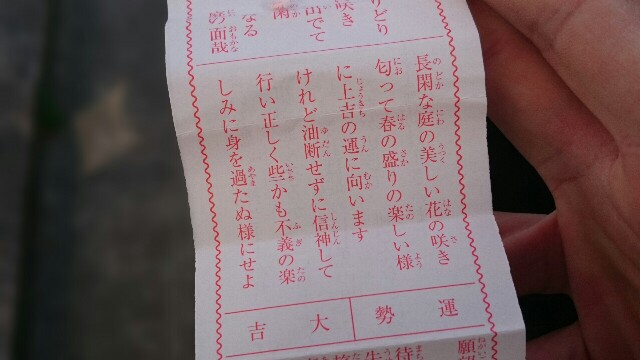 りどり
咲き
でて
なる
の面哉
長閑な庭の美しい花の咲き
匂って春の盛りの楽しい様
に上吉の運に向います
けれど油断せずに信神して
行い正しく些かも不義の楽
しみに身を過たぬ様にせよ
運勢
大吉
願
待